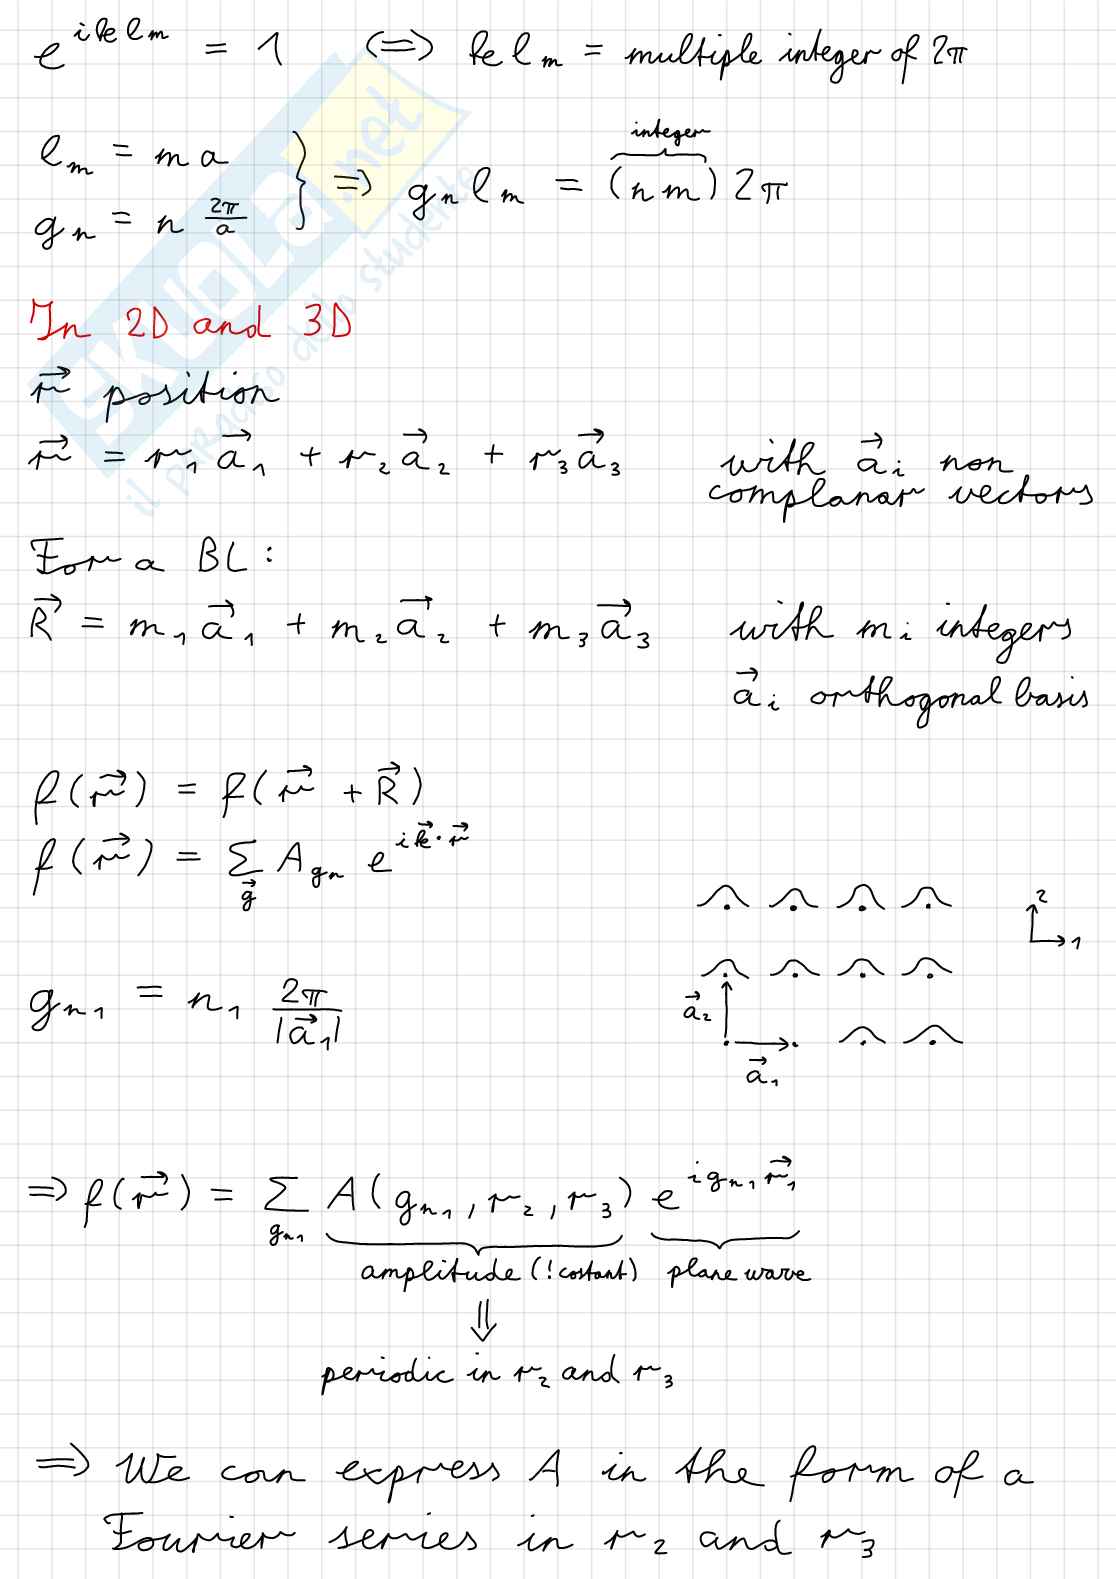 e^{i k l_m} = 1 ⟺ k l_m = multiple integer of 2π
integer
l_m = m a
g_n = n 2π/a } ⇒ g_n l_m = (n m) 2π
In 2D and 3D
r⃗ position
r⃗ = r₁ a⃗₁ + r₂ a⃗₂ + r₃ a⃗₃ with a⃗ᵢ non
complanar vectors
For a BL:
R⃗ = m₁ a⃗₁ + m₂ a⃗₂ + m₃ a⃗₃ with mᵢ integers
a⃗ᵢ orthogonal basis
f(r⃗) = f(r⃗ + R⃗)
f(r⃗) = Σ_{g⃗} A_{gn} e^{i k⃗·r⃗}
2
1
g_{n1} = n₁ 2π/|a⃗₁|
a⃗₂
a⃗₁
⇒ f(r⃗) = Σ_{g_{n1}} A(g_{n1}, r₂, r₃) e^{i g_{n1} r⃗₁}
amplitude (! costant) plane wave
⇓
periodic in r₂ and r₃
⇒ We can express A in the form of a
Fourier series in r₂ and r₃
SKUOLA.net
il paradiso dello studente